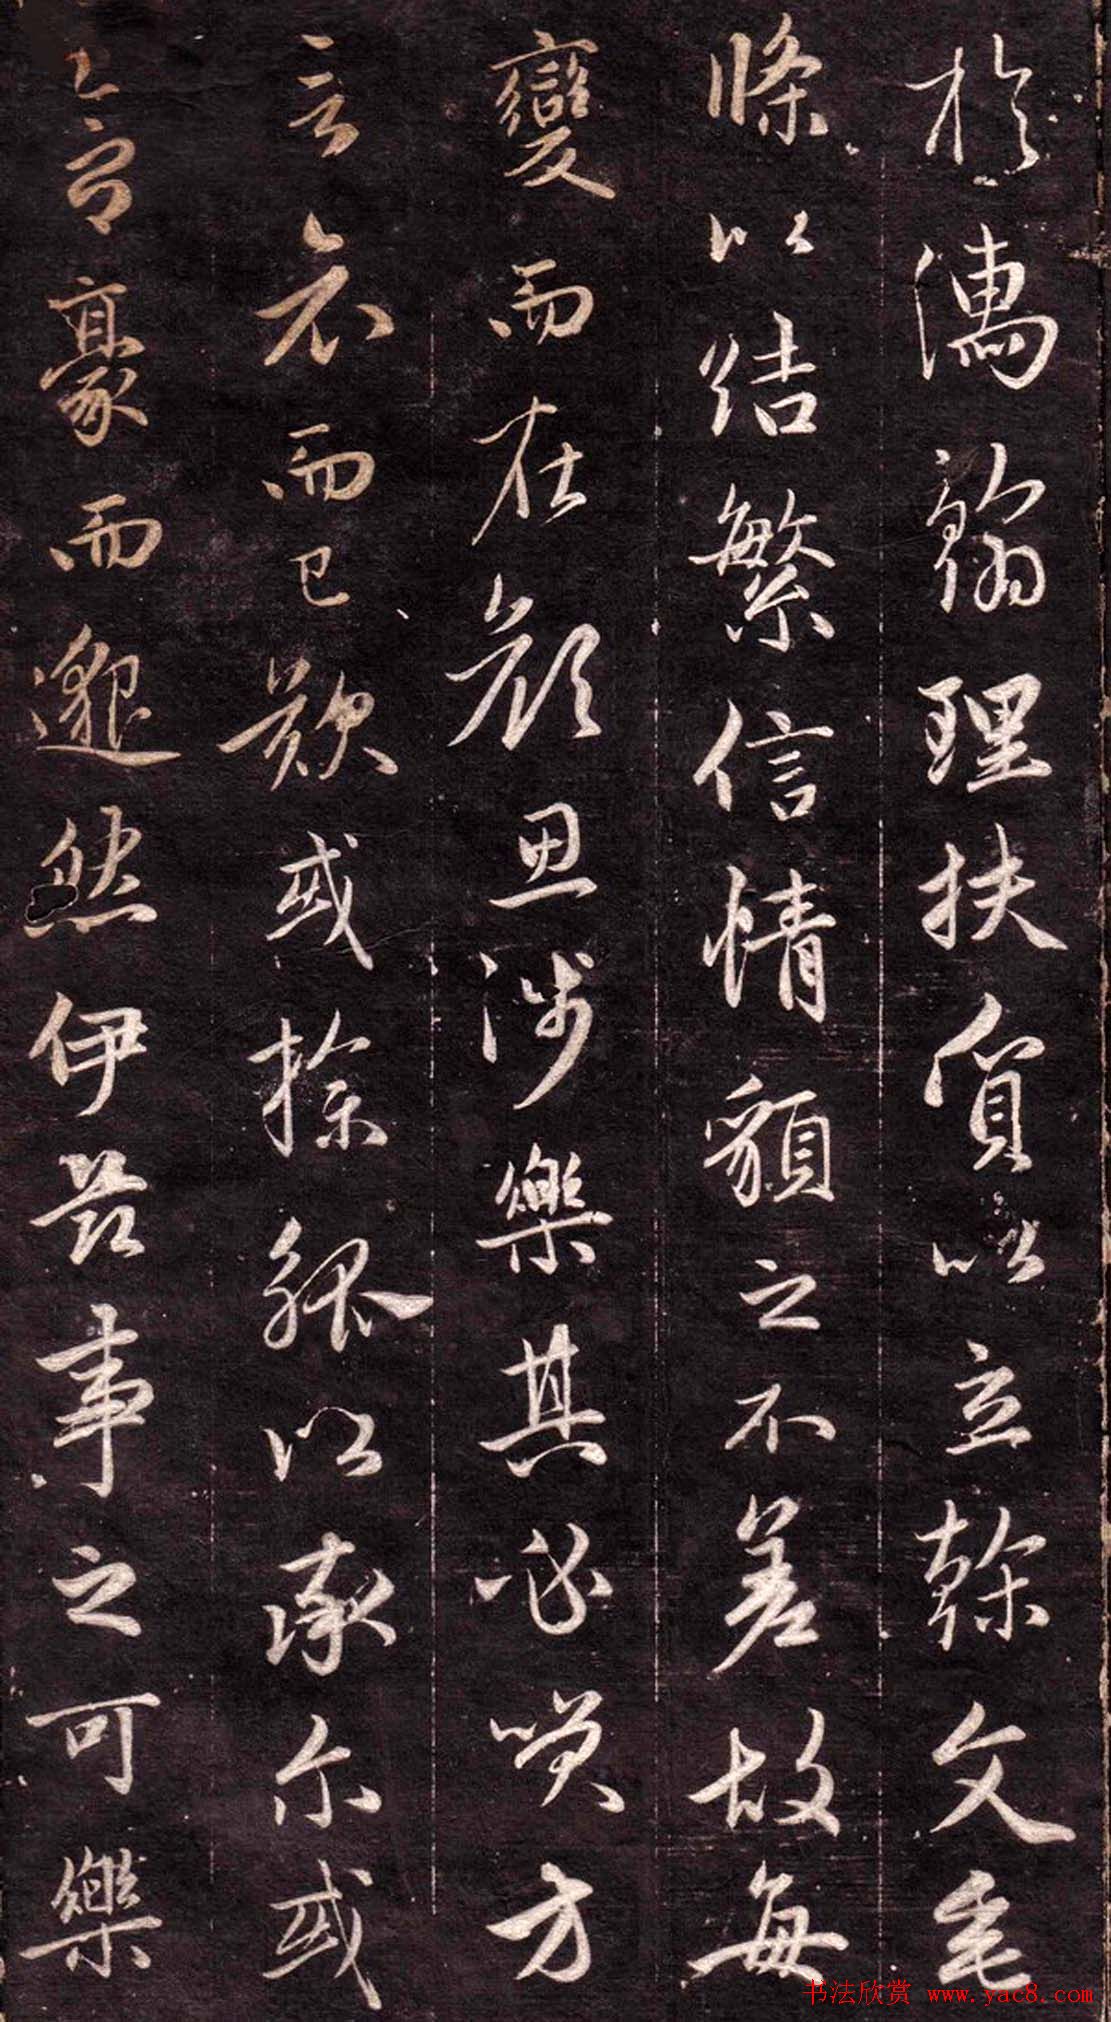 於濡翰理扶質以立幹文垂
條以結繁信情貌之不差故每
變而在顏思涉樂其必笑方
言哀而已歎或操觚以率尔或
含豪而邈然伊茲事之可樂
书法欣赏 www.yac8.com